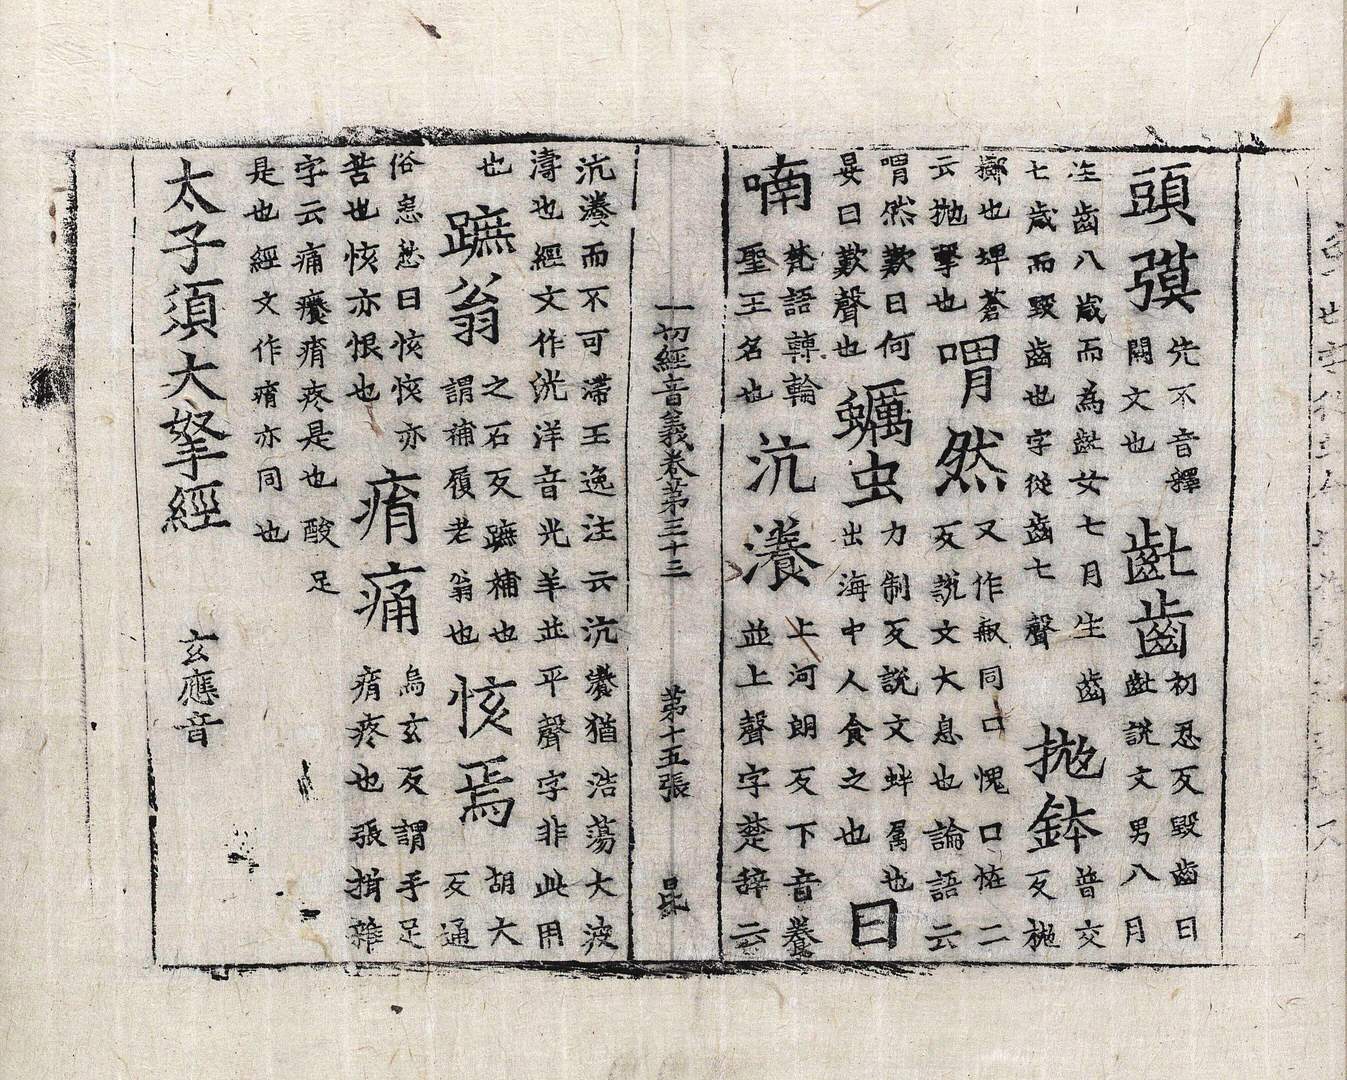 頭彍先不音釋闕文也齔齒初忍反毀齒曰齔說文男八月
生齒八歲而為齔女七月生齒七歲而毀齒也字從齒七聲拋鉢普交反拋
擲也埤蒼云拋擊也喟然又作㕟同口愧口恠二反說文大息也論語云
喟然歎曰何晏曰歎聲也蠣虫力制反說文蚌属也出海中人食之也曰
喃梵語轉輪聖王名也沆瀁上河朗反下音養並上聲字楚辞云
一切經音義卷苐三十三 苐十五張 昆
沆瀁而不可滯王逸注云沆瀁猶浩蕩大波濤也經文作洸洋音光羊並平聲字非此用
也蹠翁之石反蹠補也謂補履老翁也㤥焉胡大反通
俗愁曰㤥㤥亦苦也㤥亦恨也痟痛烏玄反謂手足痟疼也張揖雜
字云痛癢痟疼是也酸足是也經文作痟亦同也
太子須大拏經 玄應音